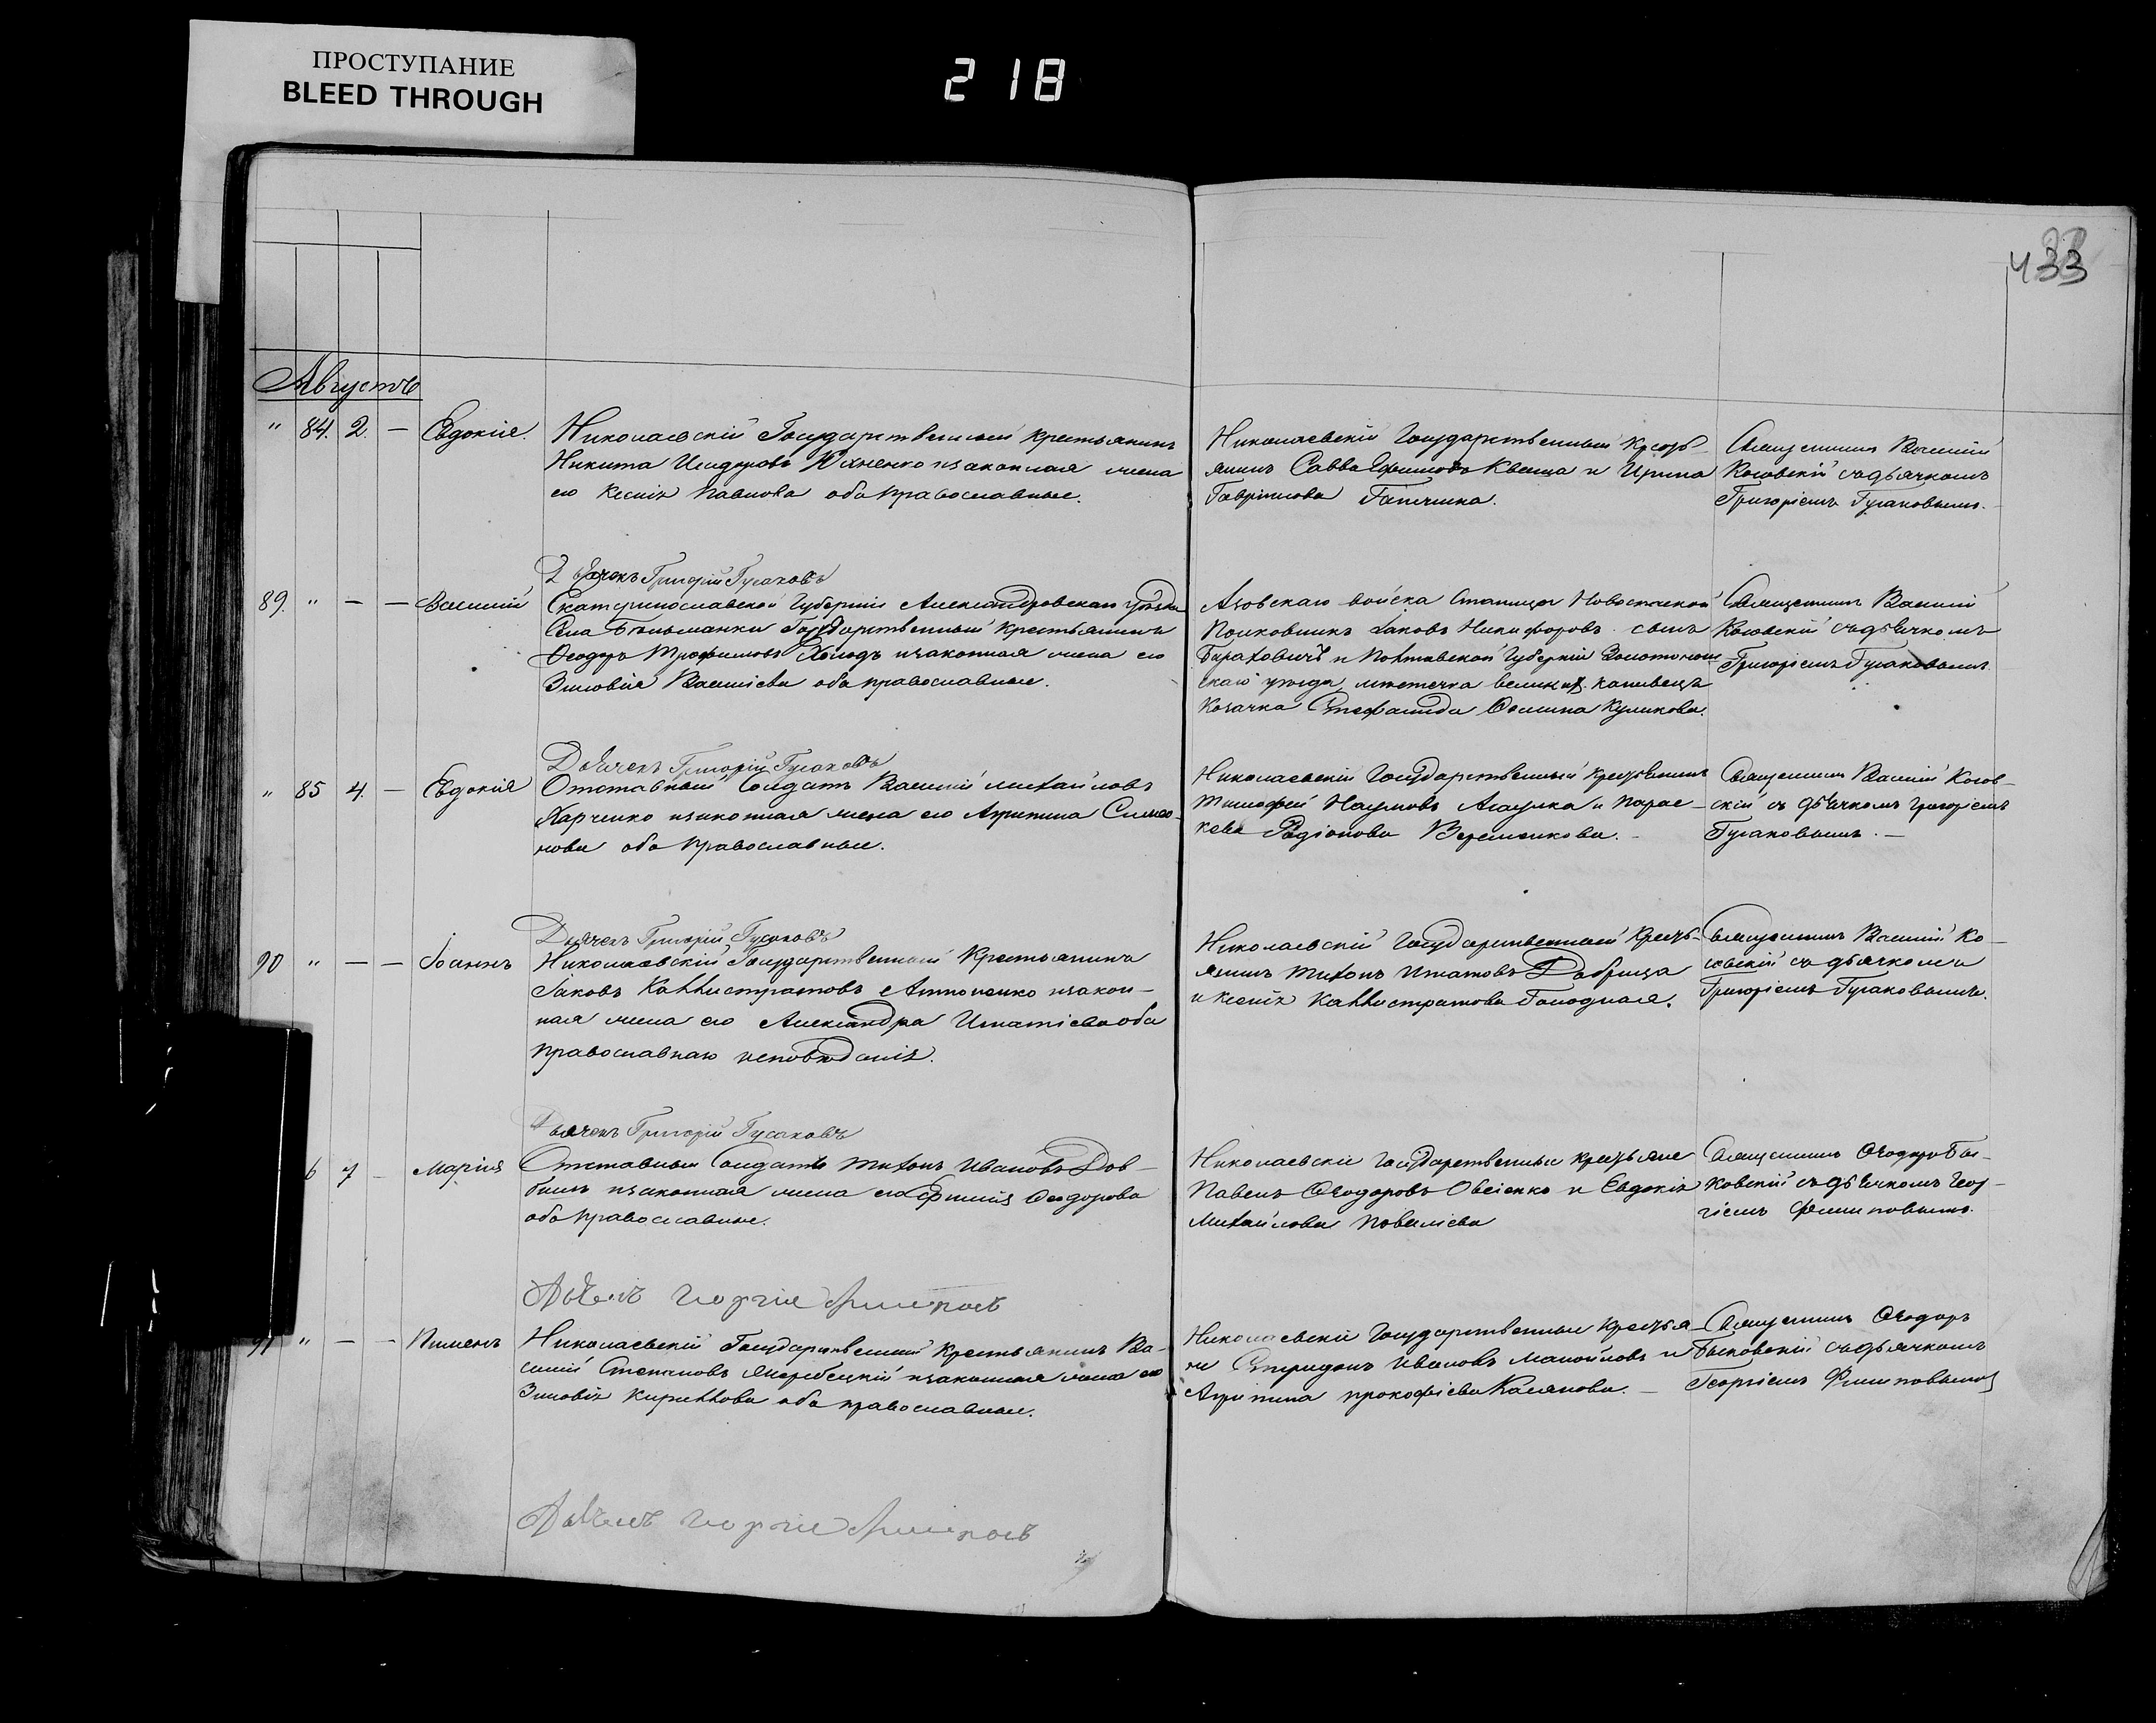 ПРОСТУПАНИЕ
BLEED THROUGH
218
433
Августъ
" 84. 2. — Евдокія. Николаевскій Государственный крестьянинъ
Никита Исидоровъ Юхненко изаконная жена
его Ксенія Павлова оба православные.
Николаевскій Государственный Кресть-
янинъ Савва Ефимовъ Кваша и Ирина
Гаврiилова
Священникъ Василій
Косовскій съ дьячкомъ
Григоріемъ Гусаковымъ.
Дьячекъ Григорій Гусаковъ
89. " — — Василій Екатеринославской Губерніи Александровскаго уѣзда
Села Бѣльманки Государственный крестьянинъ
Ѳеодоръ Трофимовъ Холодъ изаконная жена его
Зиновія Василіева оба православные.
Азовскаго войска Станицы Новоспаской
Полковникъ Іаковъ Никифоровъ сынъ
Барахович и Полтавской Губерніи Золотонош
скаго уѣзда мѣстечка великих
Козачка Стефанида Ѳомина Куликова.
Священникъ Василій
Косовскій съ дьячкомъ
Григоріемъ Гусаковымъ.
Дьячекъ Григорій Гусаковъ
" 85 4. — Евдокія Отставный Солдатъ Василій Михайловъ
Харченко изаконная жена его Агрипина Симео-
нова оба православные.
Николаевскій Государственный крестьянинъ
Тимофей Наумовъ и Парас-
кева Радіонова Веременкова. —
Священникъ Василій Косов-
скій съ дьячкомъ Григоріемъ
Гусаковымъ. —
Дьячекъ Григорій Гусаковъ
90 " — — Іоаннъ Николаевскій Государственный Крестьянинъ
Іаковъ Каллистратовъ Антоненко изакон-
ная жена его Александра Игнатіева оба
православнаго исповѣданія.
Николаевскій Государственный Кресть-
янинъ Тихонъ Игнатовъ Дабрица
и Ксенія Каллистратова Голодная.
Священникъ Василій Ко-
совскій съ дьячкомъ
Григоріемъ Гусаковымъ.
Дьячекъ Григорій Гусаковъ
6 7 — Марія Отставный Солдатъ Тихонъ Ивановъ Дов-
бишъ изаконная жена его Ефимія Ѳеодорова
оба православные.
Николаевскіе Государственные крестьяне
Павелъ Ѳеодоровъ Овсіенко и Евдокія
Михайлова
Священникъ Ѳеодоръ Бы-
ковскій съ дьячкомъ Геор-
гіемъ Филиповымъ.
Дьячекъ Георгій Филиповъ
91 " — — Пименъ Николаевскій Государственный Крестьянинъ Ва-
силій Степановъ изаконная жена его
Зиновія Кириллова оба православные.
Николаевскіе Государственные Крестья-
не Спиридонъ Ивановъ Манойловъ и
Агрипина Прокофіева Касянова. —
Священникъ Ѳеодоръ
Быковскій съ дьячкомъ
Георгіемъ Филиповымъ
Дьячекъ Георгій Филиповъ